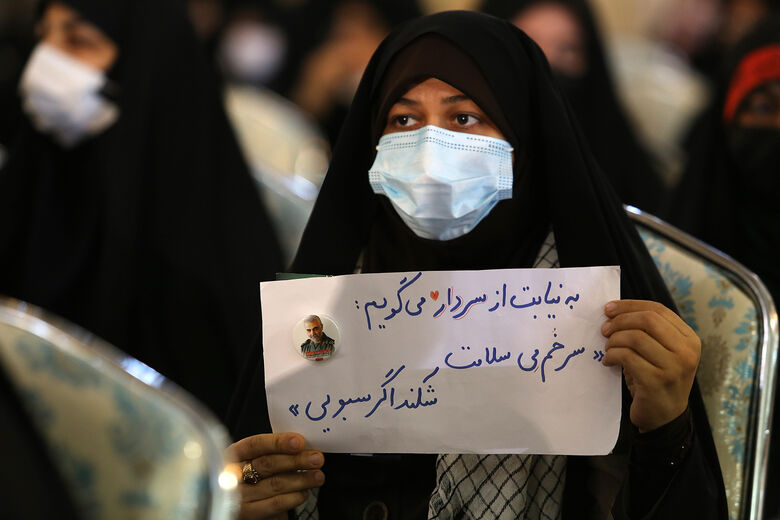 به نیابت از سردار♥ می‌گویم:
«سر خُم می سلامت
شکند اگر سبویی»